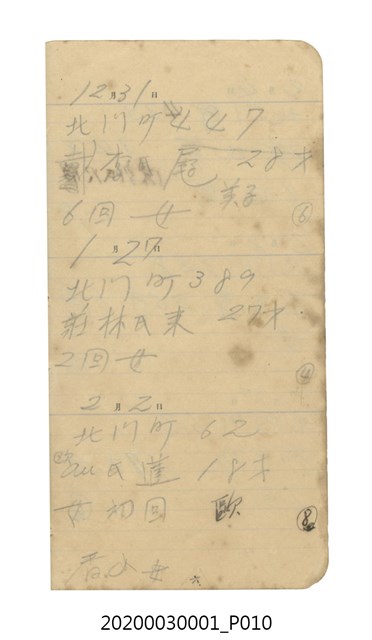 12月31日
北門町447
尾 28才
美子
6回 女 ⑥
1月27日
北門町389
莊林氏束 27才
2回 女 ④
2月2日
北門町62
氏蓮 18才
女初回 歐 ⑧
女
六
20200030001_P010